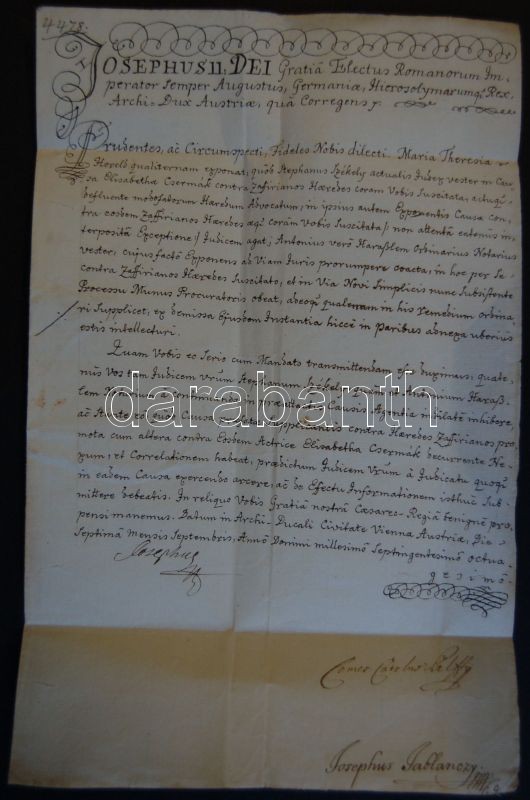 4478.
JOSEPHUS II. DEI Gratiâ Electus Romanorum Im-
perator Semper Augustus, Germaniæ, Hierosolymarumq Rex,
Archi-Dux Austriæ, quâ Corregens
Prudentes, ac Circumspecti, Fideles Nobis dilecti. Maria Theresia
exponat, quod Stephanus Székely actualis Judex vester in Cau-
sa Elisabetha Csermák contra Zaffirianos Hæredes coram Vobis Suscitata,
Hæredum Advocatum, in ipsius autem Exponentis Causa con-
tra eosdem Zaffirianos Hæredes æque coram Vobis Suscitata non attenta eatenus in-
terposita Exceptione Judicem agat, Antonius vero Haraßlem Ordinarius Notarius
vester, cujus facto Exponens ad Viam Juris prorumpere coacta, in hoc per Se
contra Zaffirianos Hæredes Suscitato, et in Via Novi Simplicis nunc Subsistente
Processu Munus Procuratoris obeat, in his remedium ordina-
ri Supplicet, ex demissa Ejusdem Instantia hicce in Paribus adnexa uberius
estis intellecturi.
Quam Vobis eo Serio cum Mandato transmittendam esse duximus, quate-
nus Vos tam Judicem Vrum Stephanum Székely, quam et Antonium Haraß-
lem Notarium a Causis Agentia inhibere,
ac Supplicantis contra Hæredes Zaffirianos pro-
mota cum altera contra Eosdem Actrice Elisabetha Csermák decurrente Ne-
xum, et Correlationem habeat, prædictum Judicem Vrum â Judicatu quoq
in eadem Causa exercendo arcere, ac de Effectu Informationem isthuc Sub-
mittere debeatis. In reliquo Vobis Gratiâ nostrâ Cæsareo-Regiâ benigne pro-
pensi manemus. Datum in Archi-Ducali Civitate Vienna Austriæ, Die
Septima Mensis Septembris, Anno Domini millesimo Septingentesimo octua-
gesimo.
Josephus
Comes Carolus Palffy
Josephus Jablanczy
darabanth